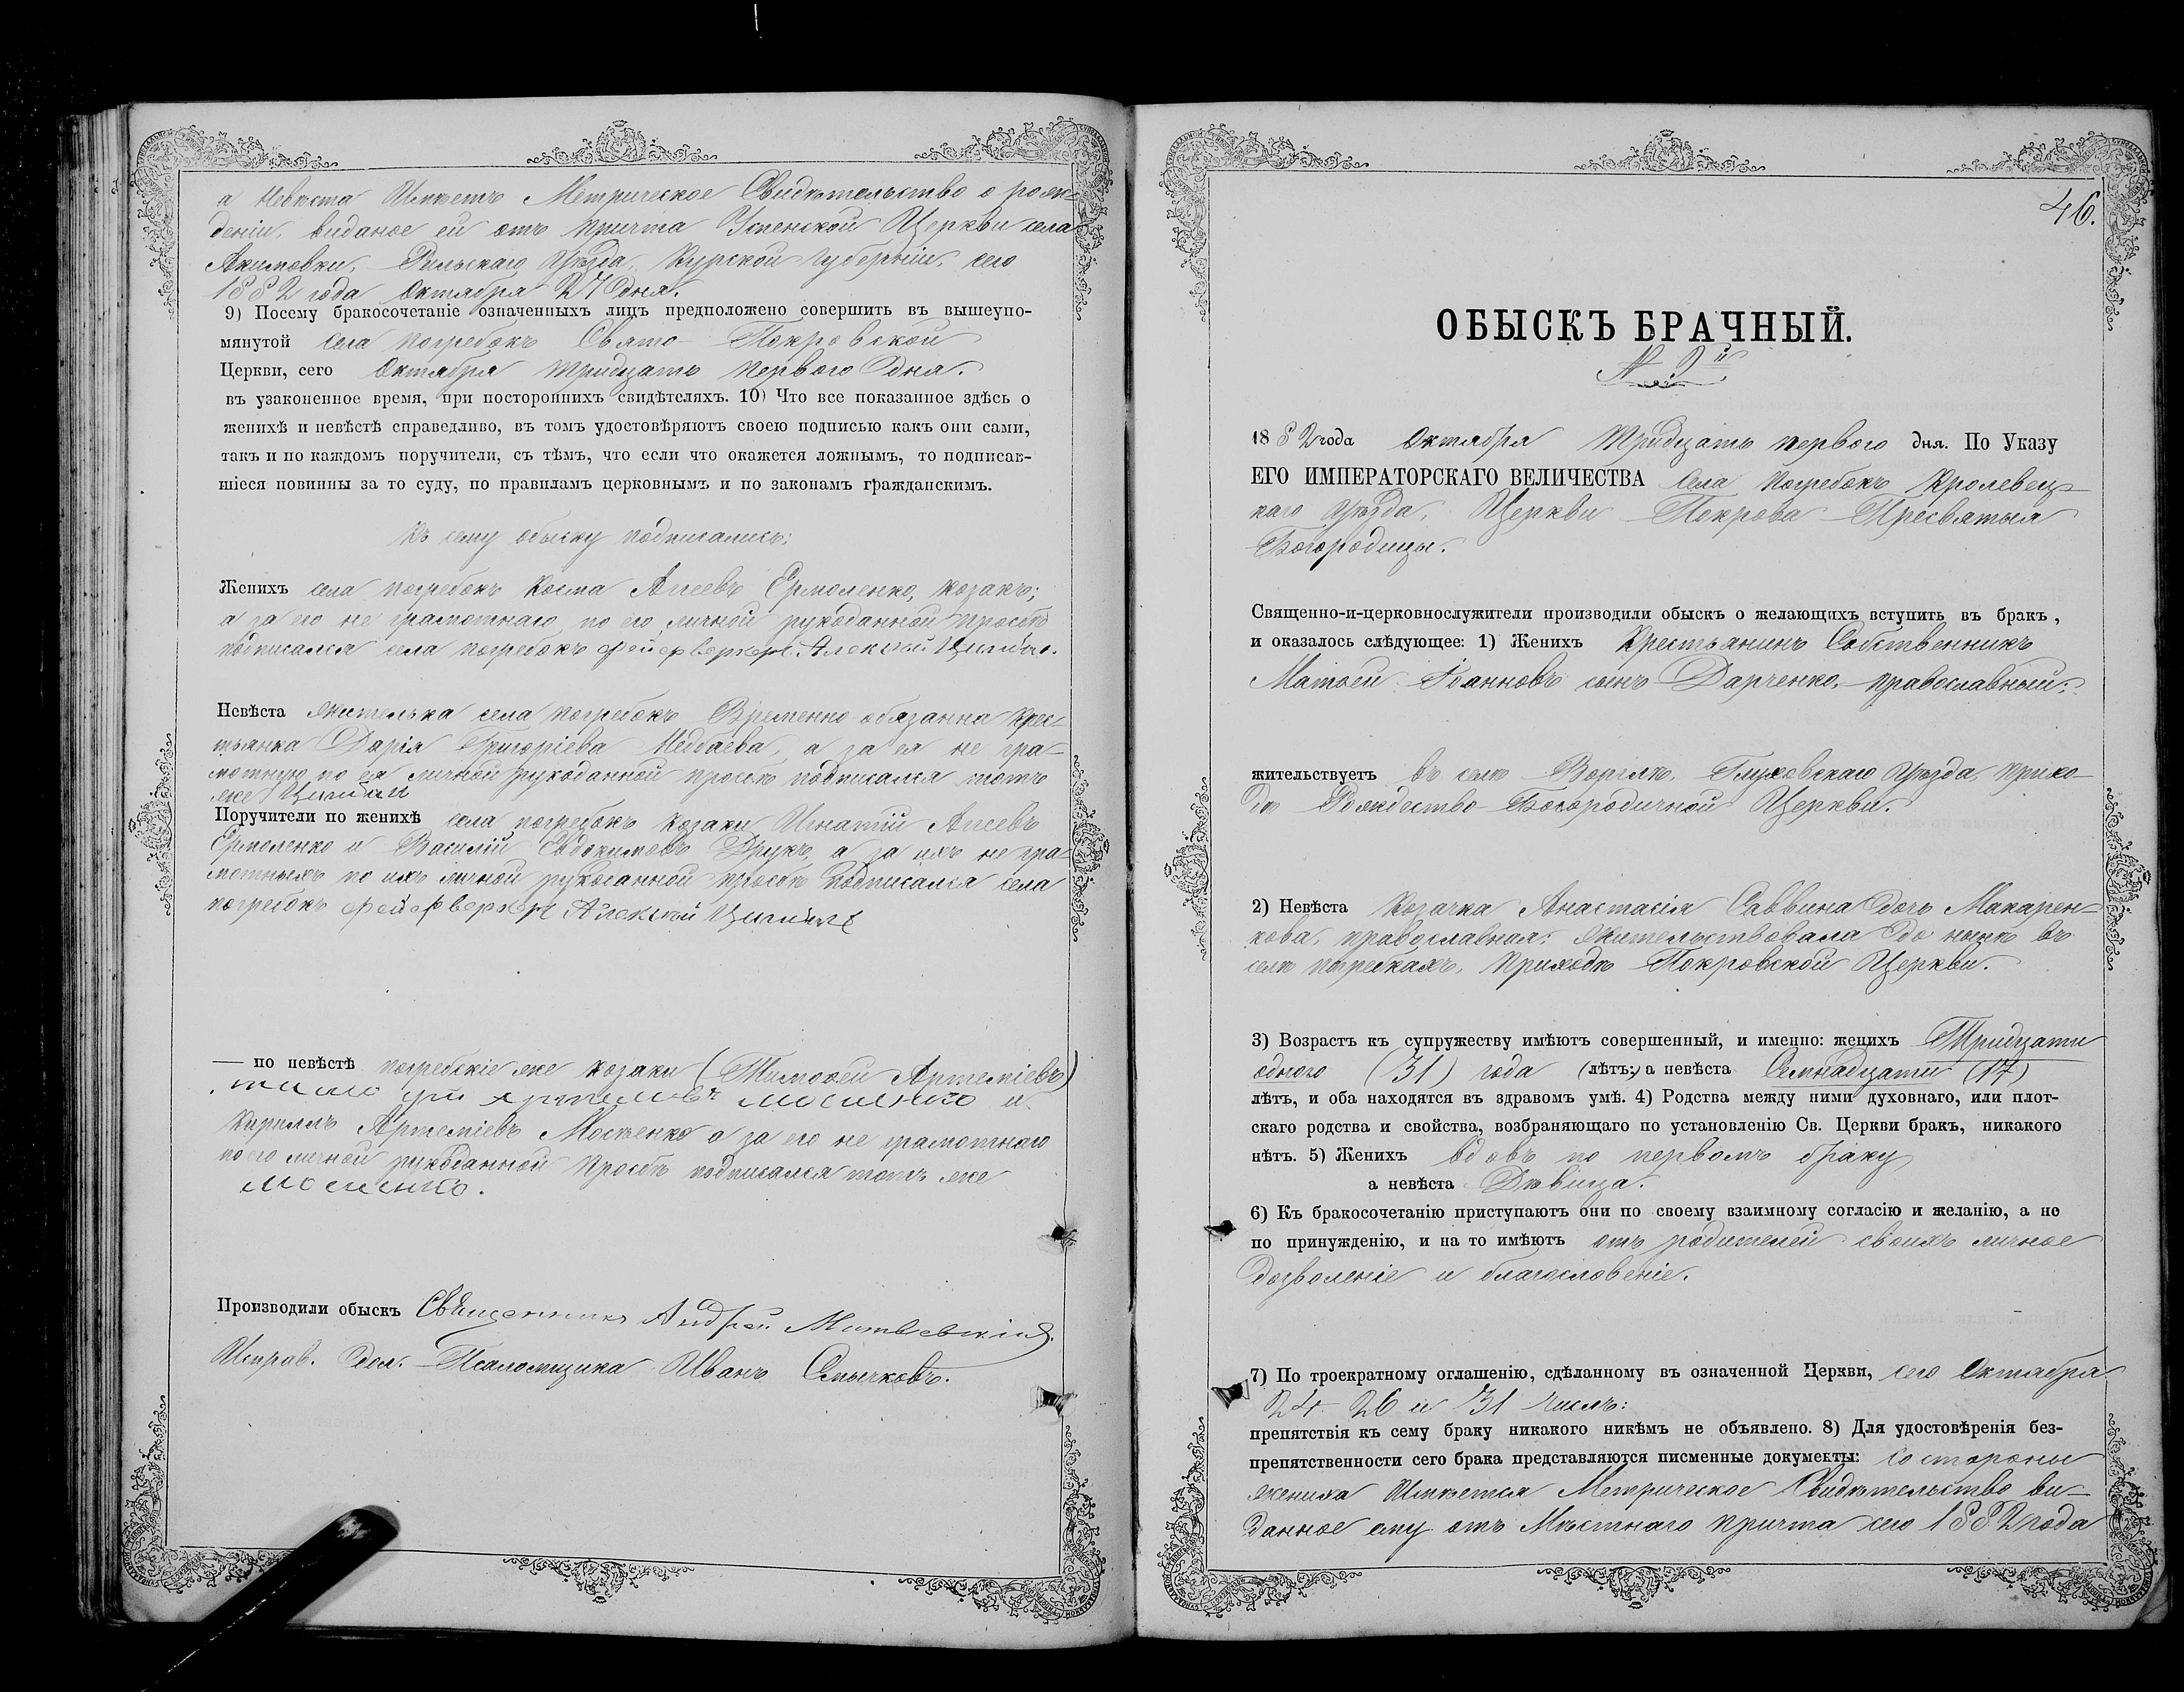 а Невѣста Имѣетъ Метрическое Свидѣтельство о рож-
деніи, виданое ей отъ причта Успенской Церкви села
Акимовки, Рильскаго Уѣзда, Курской губерніи, сего
1882 года Октября 27 дня.
9) Посему бракосочетаніе означенныхъ лицъ предположено совершить въ вышеупо-
мянутой села Погребокъ Свято-Покровской
Церкви, сего Октября тридцать первого дня.
въ узаконенное время, при постороннихъ свидѣтеляхъ. 10) Что все показанное здѣсь о
женихѣ и невѣстѣ справедливо, въ томъ удостовѣряютъ своею подписью какъ они сами,
такъ и по каждомъ поручители, съ тѣмъ, что если что окажется ложнымъ, то подписав-
шіеся повинны за то суду, по правиламъ церковнымъ и по законамъ гражданскимъ.
Къ сему обыску подписались:
Женихъ села погребокъ Косма Агеевъ Ермоленко, козакъ;
а за его не грамотнаго по его личной рукоданной просбѣ
подписался села погребокъ фейерверкеръ Алексѣй
Невѣста жителька села погребокъ Временно-обязанна крес-
тьянка Дарія Григоріева Недбаева, а за ея не гра-
мотную по ея личной рукоданной просбѣ подписался тотъ
же
Поручители по женихѣ села погребокъ козаки Игнатій Агеевъ
Ермоленко и Василій Евдокимовъ Друкъ, а за ихъ не гра-
мотныхъ по ихъ личной рукоданной просбѣ подписался села
погребокъ фейерверкеръ Алексѣй
— по невѣстѣ погребскіе же козаки (Тимоѳей Артеміевъ)
и
Кириллъ Артеміевъ Москенко а за его не грамотнаго
по его личной рукоданной просбѣ подписался тотъ же
Производили обыскъ Священникъ Андрей
Исправ. дол. Псаломщика Иванъ Смычковъ.
46.
ОБЫСКЪ БРАЧНЫЙ.
N. 9й
1882 года Октября Тридцать первого дня. По Указу
ЕГО ИМПЕРАТОРСКАГО ВЕЛИЧЕСТВА села Погребокъ Кролевец-
каго Уѣзда, Церкви Покрова Пресвятыя
Богородицы.
Священно-и-церковнослужители производили обыскъ о желающихъ вступить въ бракъ,
и оказалось слѣдующее: 1) Женихъ Крестьянинъ Собственникъ
Матѳей Іоанновъ сынъ Дарченко, православный;
жительствуетъ въ селѣ Воргпѣ, Глуховскаго Уѣзда, прихо-
дѣ Рождество-Богородичной Церкви.
2) Невѣста Козачка Анастасія Саввина дочь Макарен-
кова, православная; жительствовала до нынѣ въ
селѣ погребкахъ, приходѣ Покровской Церкви.
3) Возрастъ къ супружеству имѣютъ совершенный, и именно: женихъ Тридцати
одного (31) года (лѣтъ;) а невѣста Семнадцати (17)
лѣтъ, и оба находятся въ здравомъ умѣ. 4) Родства между ними духовнаго, или плот-
скаго родства и свойства, возбраняющаго по установленію Св. Церкви бракъ, никакого
нѣтъ. 5) Женихъ вдовъ по первомъ браку
а невѣста Дѣвица.
6) Къ бракосочетанію приступаютъ они по своему взаимному согласію и желанію, а не
по принужденію, и на то имѣютъ отъ родителей своихъ личное
дозволеніе и благословеніе.
7) По троекратному оглашенію, сдѣланному въ означенной Церкви, сего Октября
24 26 и 31 числъ:
препятствія къ сему браку никакого никѣмъ не объявлено. 8) Для удостовѣренія без-
препятственности сего брака представляются писменные документы: со стороны
жениха Имѣется Метрическое Свидѣтельство ви-
данное ему отъ Мѣстнаго причта сего 1882 года